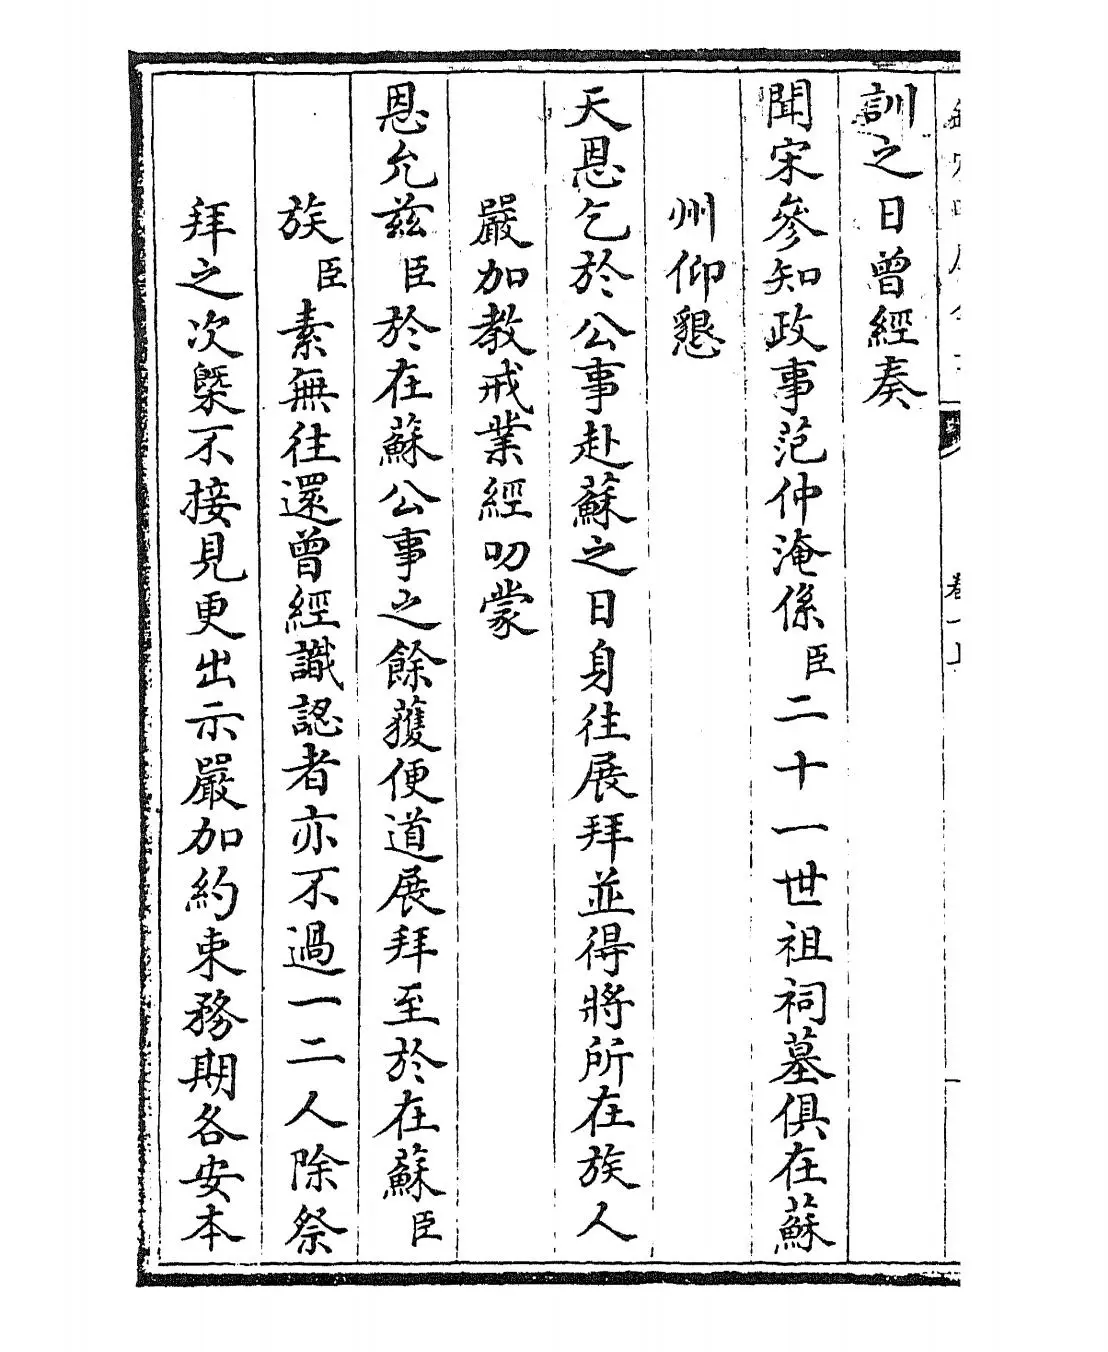 訓之日曾經奏
聞宋參知政事范仲淹係臣二十一世祖祠墓俱在蘇
州仰懇
天恩乞於公事赴蘇之日身往展拜並得將所在族人
嚴加教戒業經叨蒙
恩允兹臣於在蘇公事之餘獲便道展拜至於在蘇臣
族臣素無往還曾經識認者亦不過一二人除祭
拜之次槩不接見更出示嚴加約束務期各安本